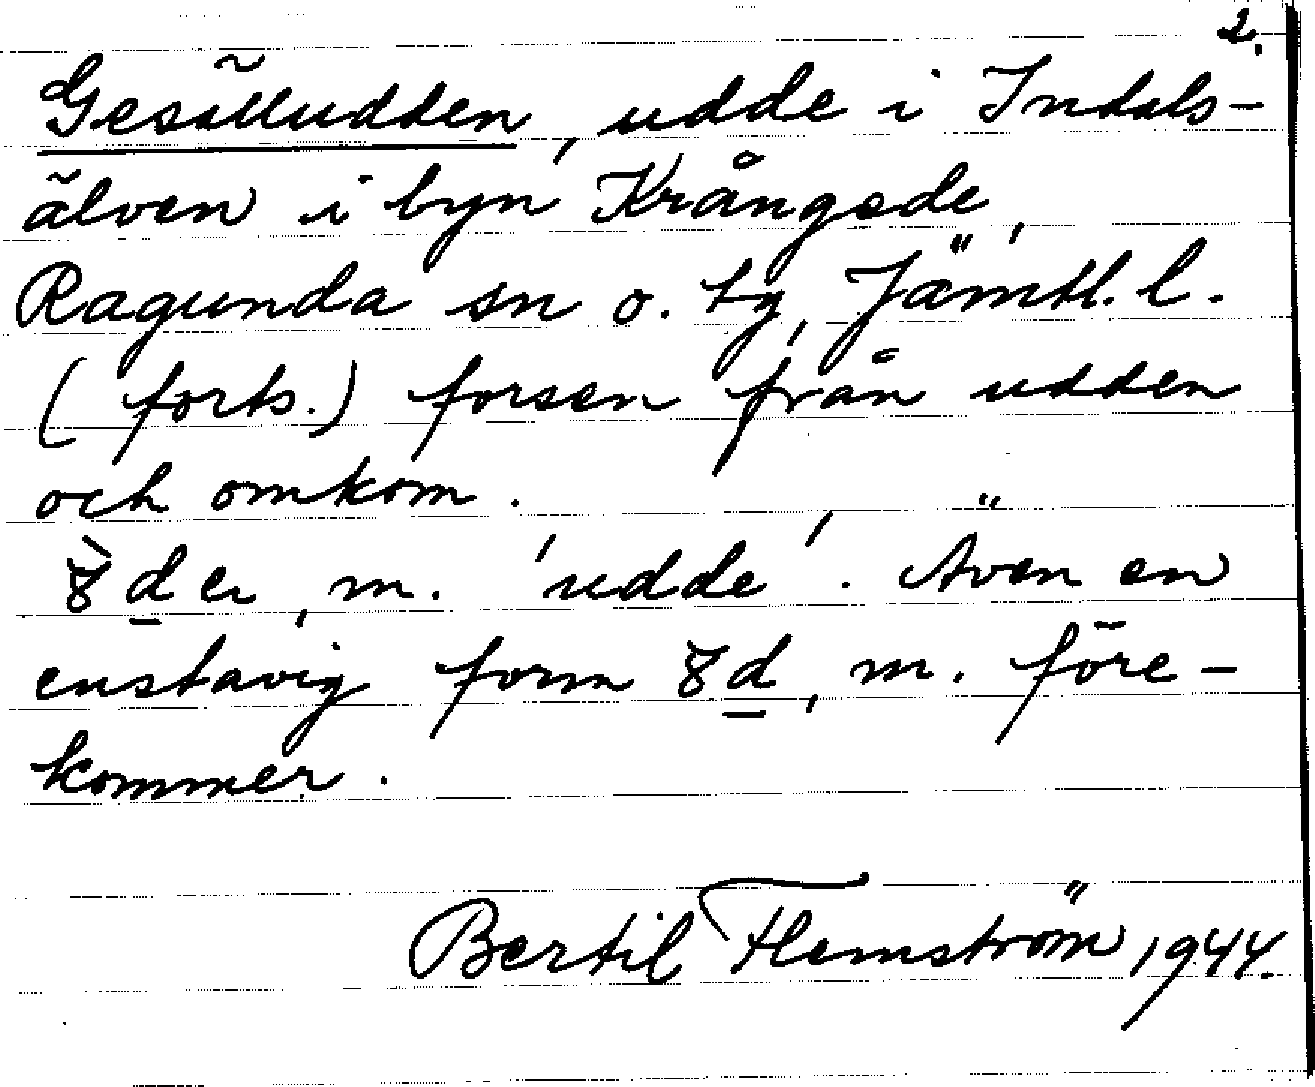 2.
Gesälludden, udde i Indals-
älven i byn Krångede,
Ragunda sn o. tg, Jämtl. l.
(forts.) forsen från udden
och omkom.
m. 'udde'. Även en
enstavig form m. före-
kommer.
Bertil Flemström 1944.